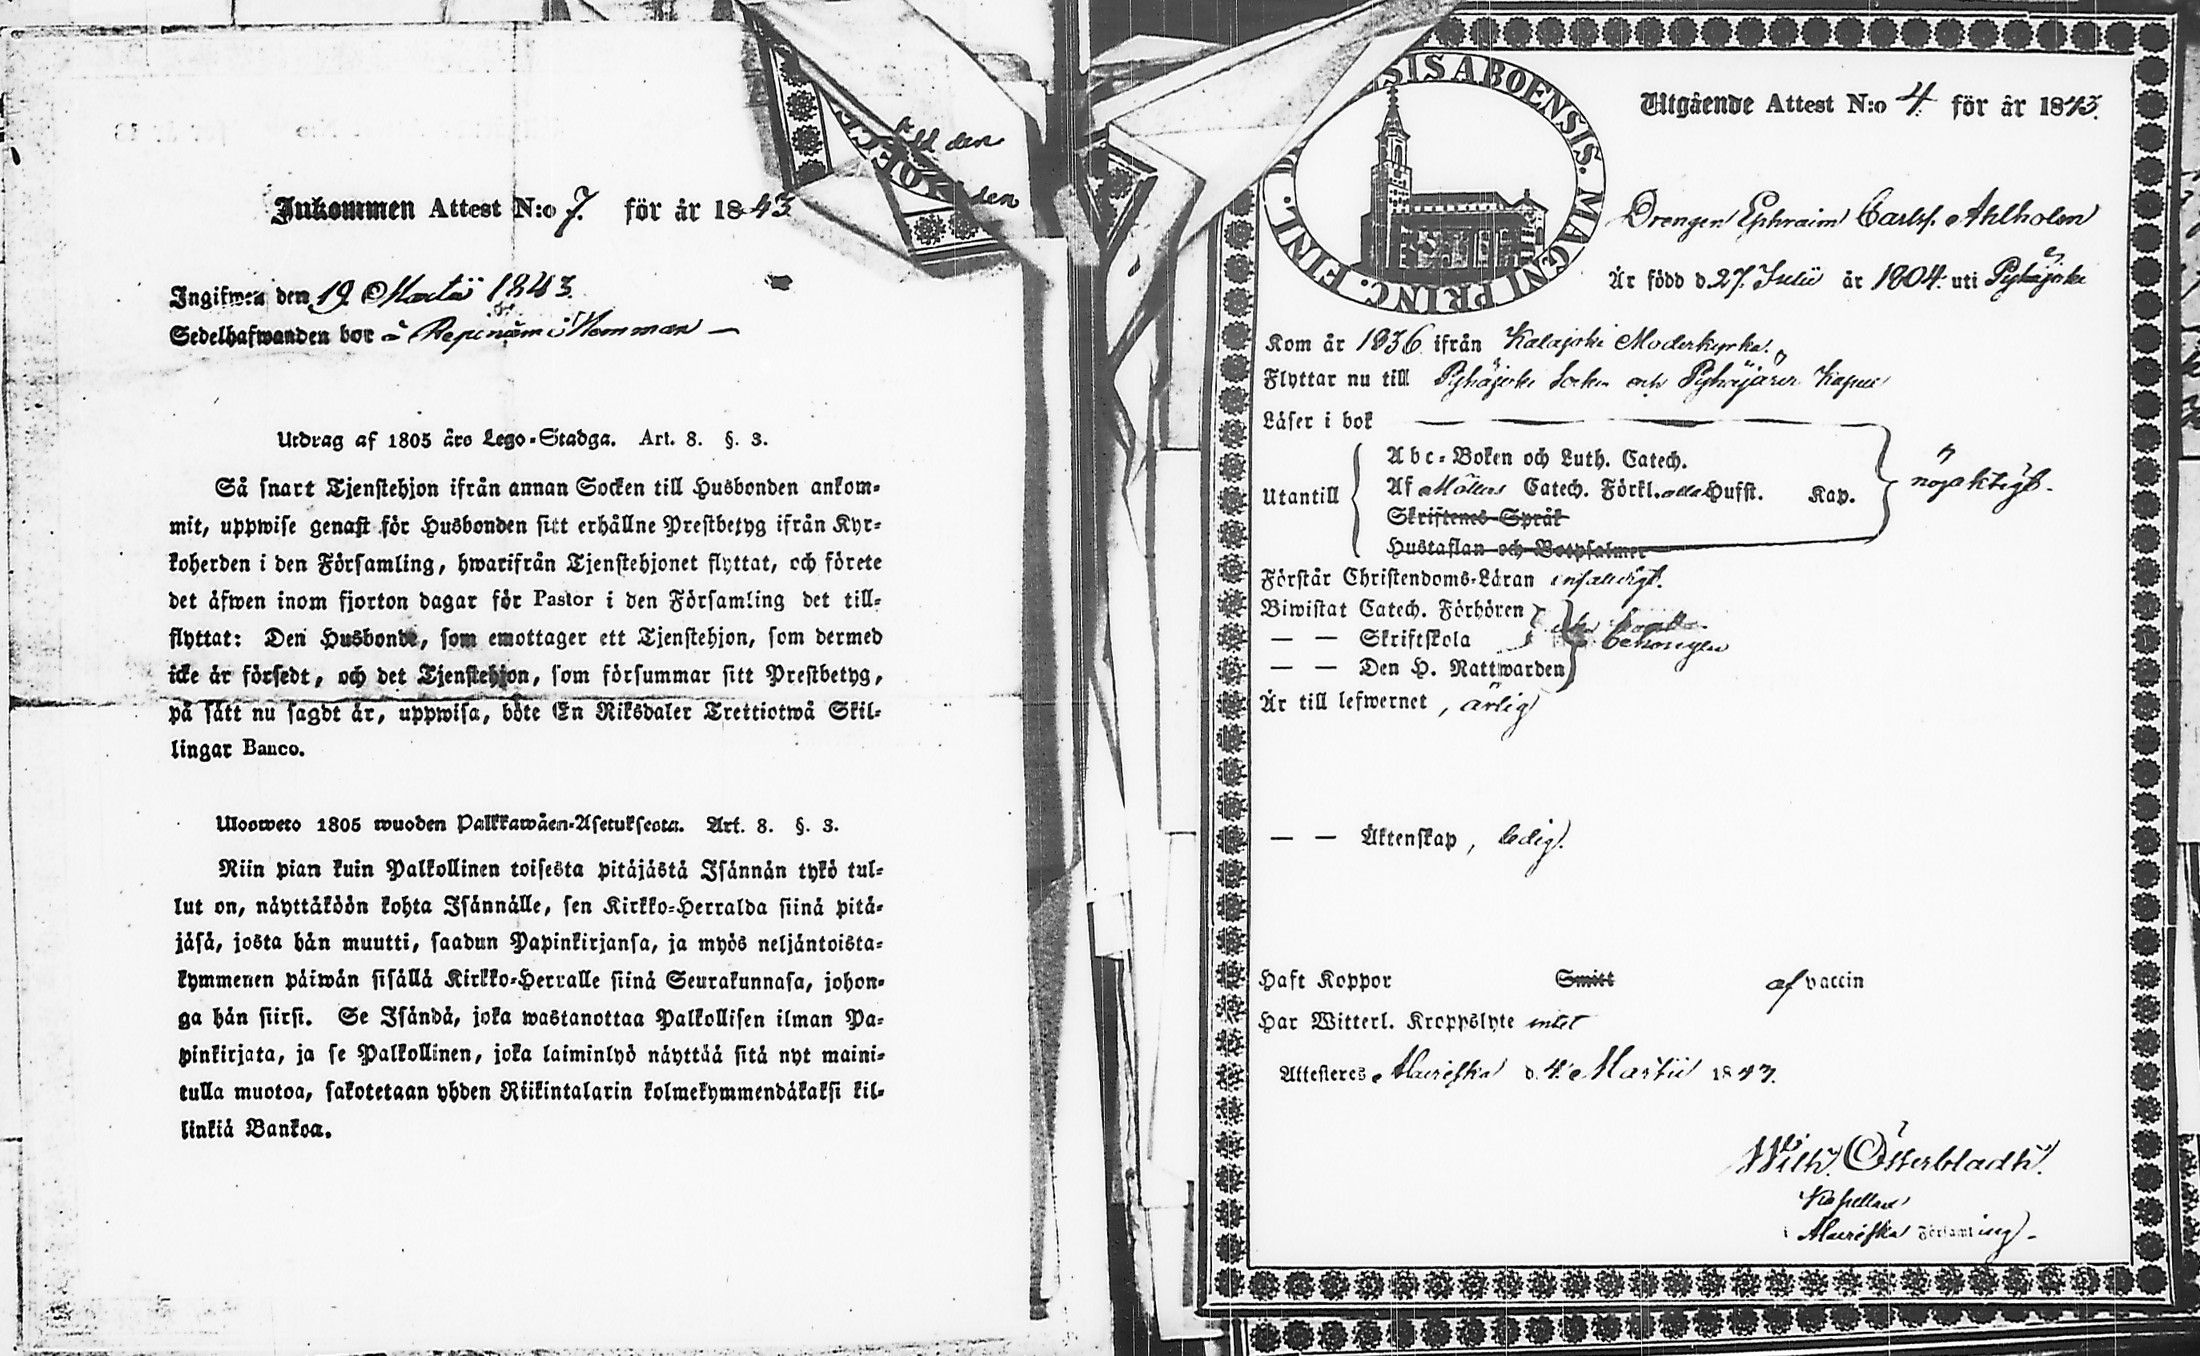 Inkommen Attest N:o 7. för år 1843.
Ingifwen den 19 Martii 1843.
Sedelhafwanden bor å Hemman —
Utdrag af 1805 års Lego-Stadga. Art. 8. §. 3.
Så snart Tjenstehjon ifrån annan Socken till Husbonden ankom-
mit, uppwise genast för Husbonden sitt erhållne Prestbetyg ifrån Kyr-
koherden i den Församling, hwarifrån Tjenstehjonet flyttat, och förete
det äfwen inom fjorton dagar för Pastor i den Församling det till-
flyttat: Den Husbonde, som emottager ett Tjenstehjon, som dermed
icke är försedt, och det Tjenstehjon, som försummar sitt Prestbetyg,
på sätt nu sagdt är, uppwisa, böte En Riksdaler Trettiotwå Skil-
lingar Banco.
Ulosweto 1805 wuoden Palkkawäen-Asetuksesta. Art. 8. §. 3.
Niin pian kuin Palkollinen toisesta pitäjästä Isännän tykö tul-
lut on, näyttäköön kohta Isännälle, sen Kirkko-Herralda siinä pitä-
jäsä, josta hän muutti, saadun Papinkirjansa, ja myös neljäntoista-
kymmenen päiwän sisällä Kirkko-Herralle siinä Seurakunnasa, johon-
ga hän siirsi. Se Isändä, joka wastanottaa Palkollisen ilman Pa-
pinkirjata, ja se Palkollinen, joka laiminlyö näyttää sitä nyt maini-
tulla muotoa, sakotetaan yhden Riikintalarin kolmekymmendäkaksi kil-
linkiä Bankoa.
den
den
SIS ABOENSIS. MAGNI PRINC. FINL.
Utgående Attest N:o 4. för år 1843.
Drengen Ephraim Carlss. Ahlholm
Är född d. 27. Julii år 1804. uti Pyhäjoki
Kom år 1836 ifrån Kalajoki Moderkyrka.
Flyttar nu till Pyhäjoki Socken och Pyhäjärvi Kapell
Läser i bok
Utantill
Abc-Boken och Luth. Catech.
Af Möllers Catech. Förkl. alla Hufst. Kap.
Skriftenes Språk
Hustaflan och Botpsalmer
nöjaktigt.
Förstår Christendoms-Läran enfaldigt.
Biwistat Catech. Förhören
— — Skriftskola behörigen
— — Den H. Nattwarden
Är till lefwernet, ärlig
— — Äktenskap, ledig.
Haft Koppor Smitt af vaccin
Har Witterl. Kroppslyte intet
Attesteres Haurefska d. 4. Martii 1843.
Wilh. Österbladh.
Kapellan
i Församling.